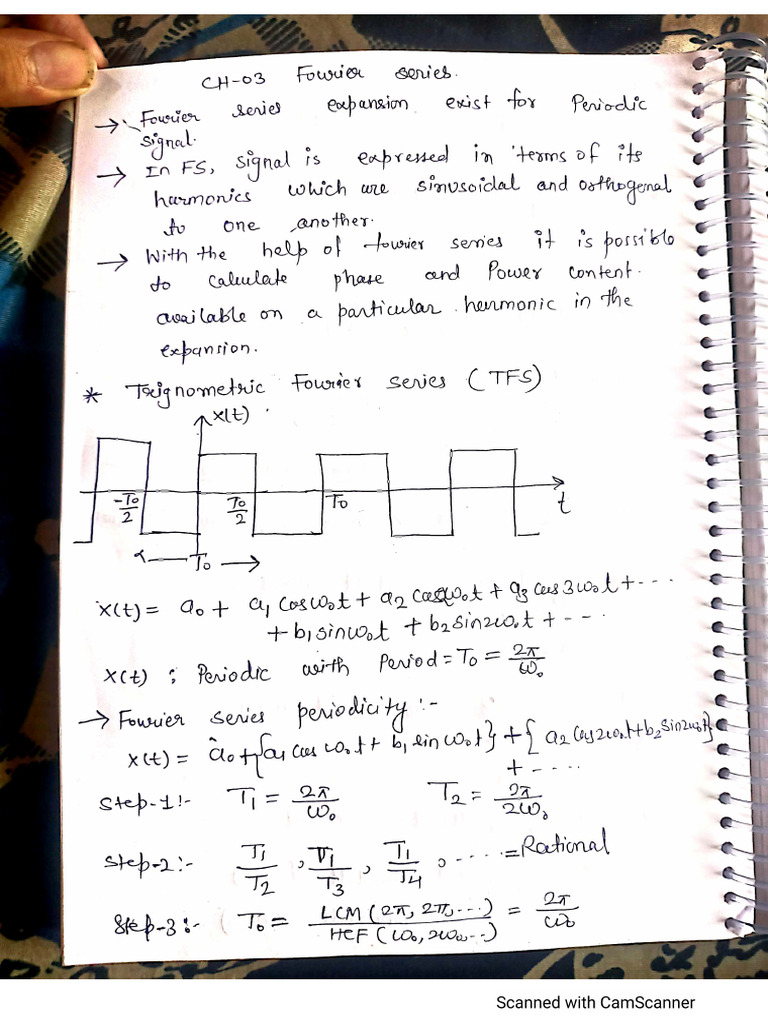 CH-03 Fourier series.
→ Fourier series expansion exist for Periodic
signal.
→ In FS, signal is expressed in terms of its
harmonics which are sinusoidal and orthogonal
to one another.
→ With the help of fourier series it is possible
to calculate phase and Power content
available on a particular harmonic in the
expansion.
* Trignometric Fourier series (TFS)
x(t)
-To/2 To/2 To t
To →
x(t) = a0 + a1 cosω0t + a2 cos2ω0t + a3 cos3ω0t + ---
+ b1 sinω0t + b2 sin2ω0t + ---
x(t) ; Periodic with Period = To = 2π/ω0
→ Fourier series periodicity :-
x(t) = a0 + {a1 cos ω0t + b1 sin ω0t} + { a2 cos2ω0t + b2 sin2ω0t}
+ ----
Step-1:- T1 = 2π/ω0 T2 = 2π/2ω0
Step-2:- T1/T2 , T1/T3 , T1/T4 , ----- = Rational
Step-3:- To = LCM (2π, 2π, ...)/HCF (ω0, 2ω0, ...) = 2π/ω0
Scanned with CamScanner